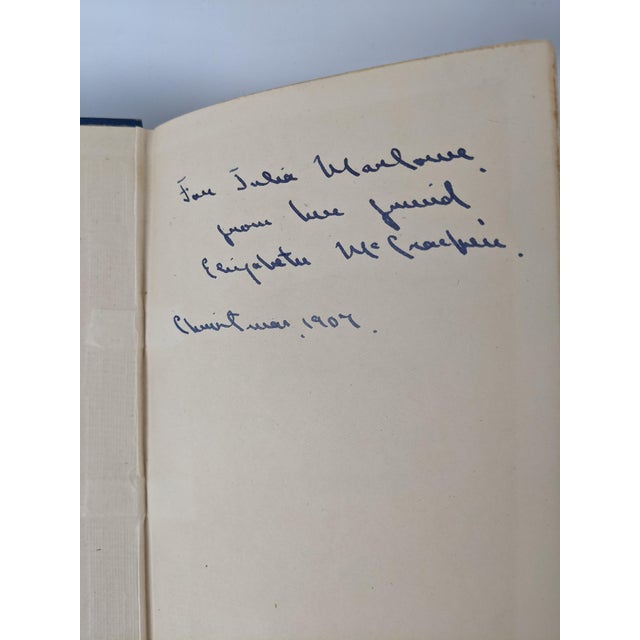 For Julia Marlowe
from her friend
Elizabeth McCracken.
Christmas, 1907.